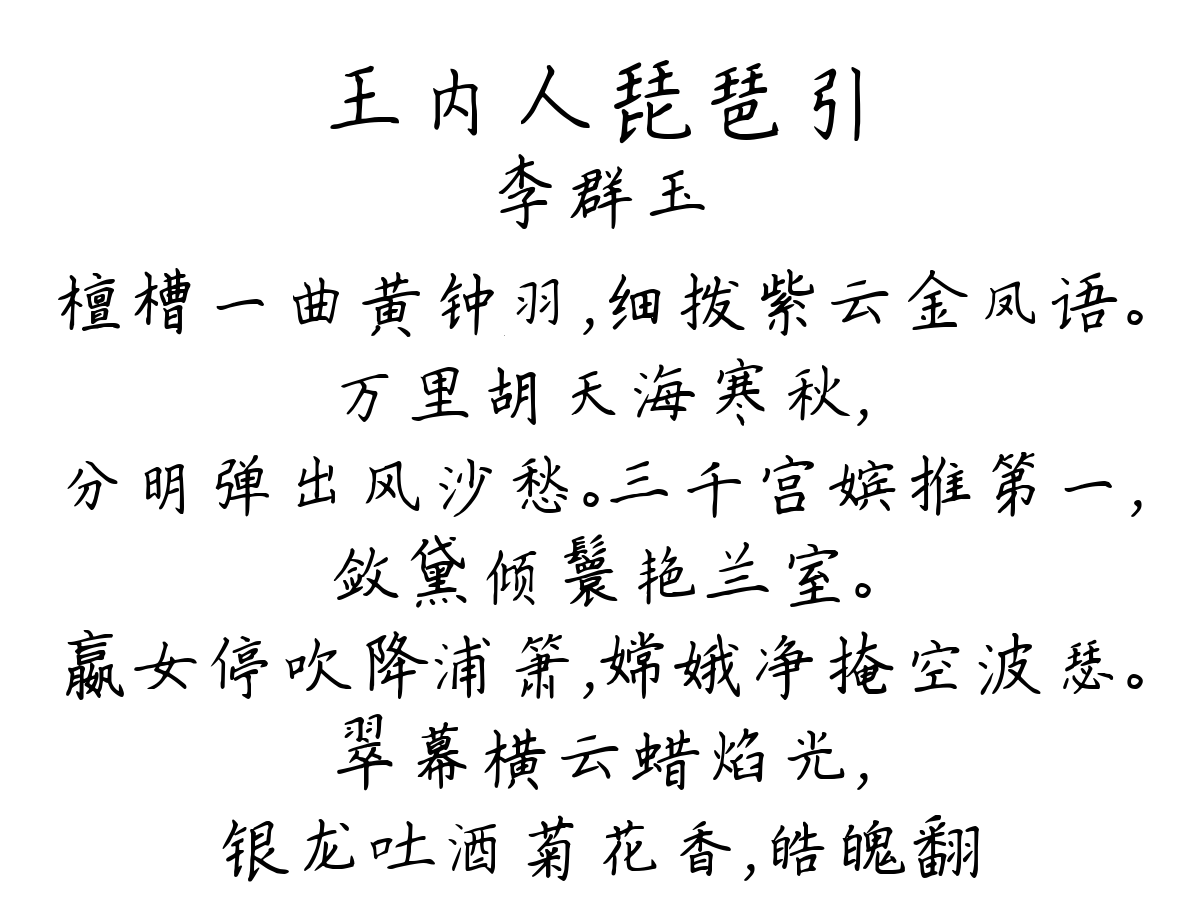 王内人琵琶引
李群玉
檀槽一曲黄钟羽,细拨紫云金凤语。
万里胡天海寒秋,
分明弹出风沙愁。三千宫嫔推第一,
敛黛倾鬟艳兰室。
嬴女停吹降浦箫,嫦娥净掩空波瑟。
翠幕横云蜡焰光,
银龙吐酒菊花香,皓魄翻